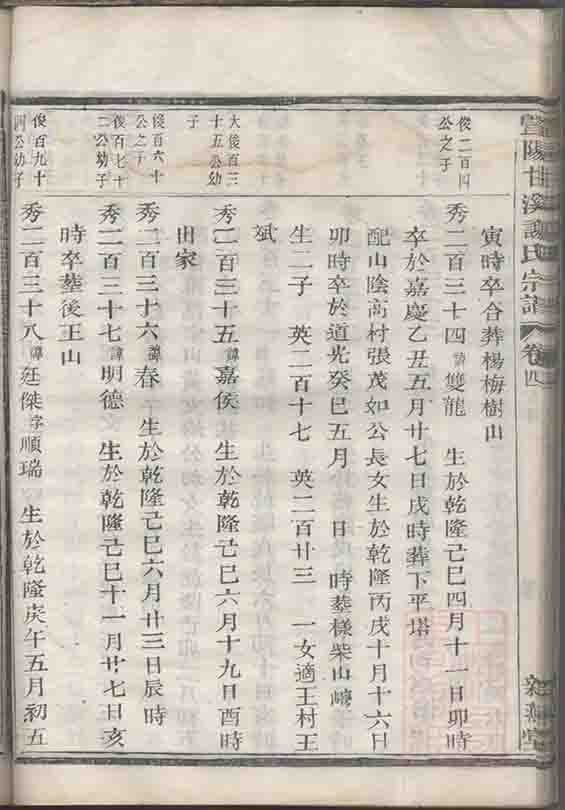 暨陽甘溪謝氏宗譜
卷四
寅時卒合葬楊梅樹山
俊二百四
公之子
秀二百三十四諱雙龍 生於乾隆己巳四月十一日卯時
卒於嘉慶乙丑五月廿七日戌時葬下平塔
配山陰高村張茂如公長女生於乾隆丙戌十月十六日
卯時卒於道光癸巳五月 日 時葬様柴山
生二子 英二百十七 英二百廿三 一女適王村王
斌
大俊百三
十五公幼
子
秀二百三十五諱嘉侯 生於乾隆己巳六月十九日酉時
田家
俊百六十
公之子
秀二百三十六諱春 生於乾隆己巳六月廿三日辰時
俊百七十
二公幼子
秀二百三十七諱明德 生於乾隆己巳十一月廿七日亥
時卒葬後王山
俊百九十
四公幼子
秀二百三十八諱廷傑字順瑞 生於乾隆庚午五月初五